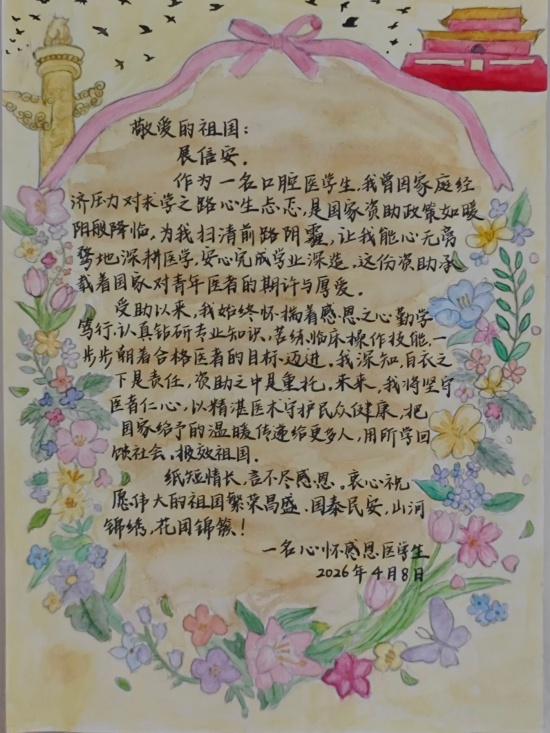 敬爱的祖国：
展信安。
作为一名口腔医学生，我曾因家庭经
济压力对求学之路心生忐忑，是国家资助政策如暖
阳般降临，为我扫清前路阴霾，让我能心无旁
骛地深耕医学，安心完成学业深造。这份资助承
载着国家对青年医者的期许与厚爱。
受助以来，我始终怀揣着感恩之心勤学
笃行，认真钻研专业知识、苦练临床操作技能，一
步步朝着合格医者的目标迈进。我深知，白衣之
下是责任，资助之中是重托。未来，我将坚守
医者仁心，以精湛医术守护民众健康，把
国家给予的温暖传递给更多人，用所学回
馈社会、报效祖国。
纸短情长，言不尽感恩。衷心祝
愿伟大的祖国繁荣昌盛、国泰民安，山河
锦绣，花团锦簇！
一名心怀感恩医学生
2026年4月8日